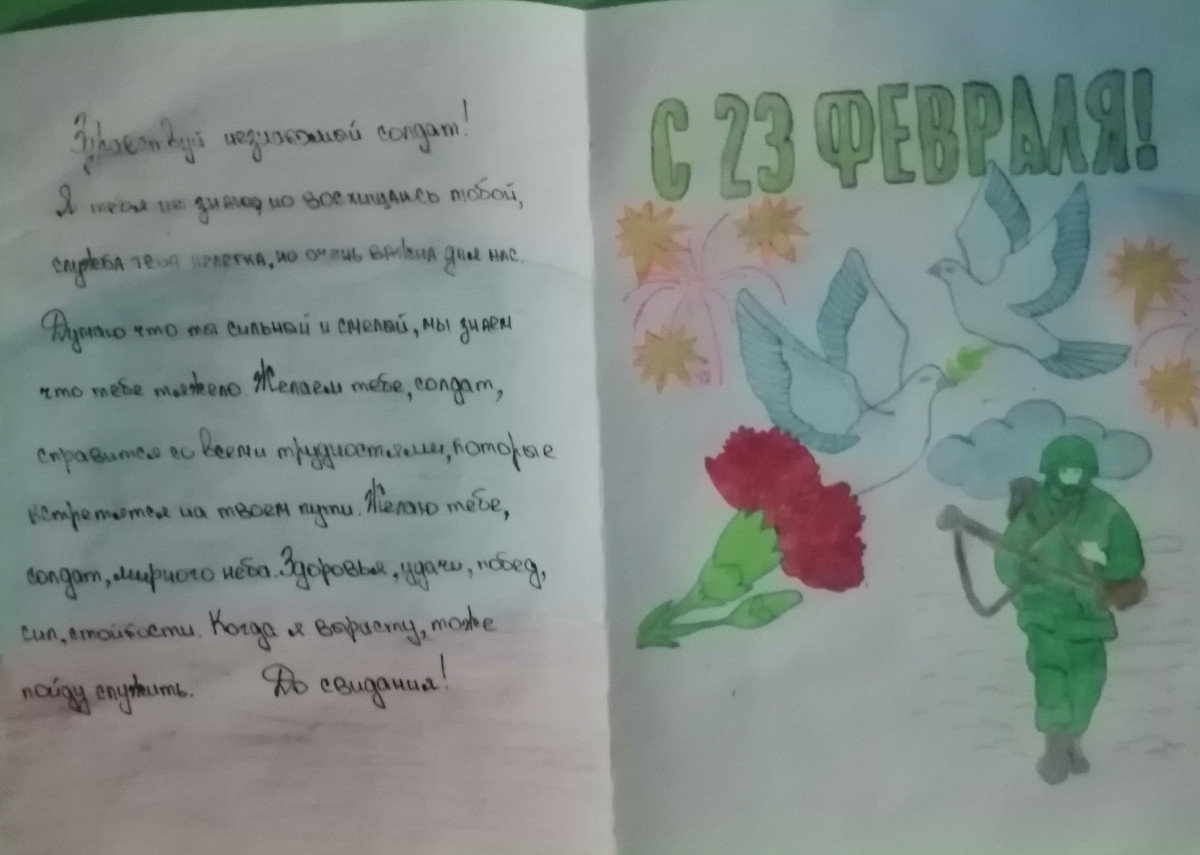 Здравствуй незнакомый солдат!
Я тебя не знаю, но восхищаюсь тобой,
служба твоя нелегка, но очень важна для нас.
Думаю что ты сильный и смелый, мы знаем
что тебе тяжело. Желаем тебе, солдат,
справится со всеми трудностями, которые
встретятся на твоем пути. Желаю тебе,
солдат, мирного неба. Здоровья, удачи, побед,
сил, стойкости. Когда я вырасту, тоже
пойду служить. До свидания!
С 23 ФЕВРАЛЯ!